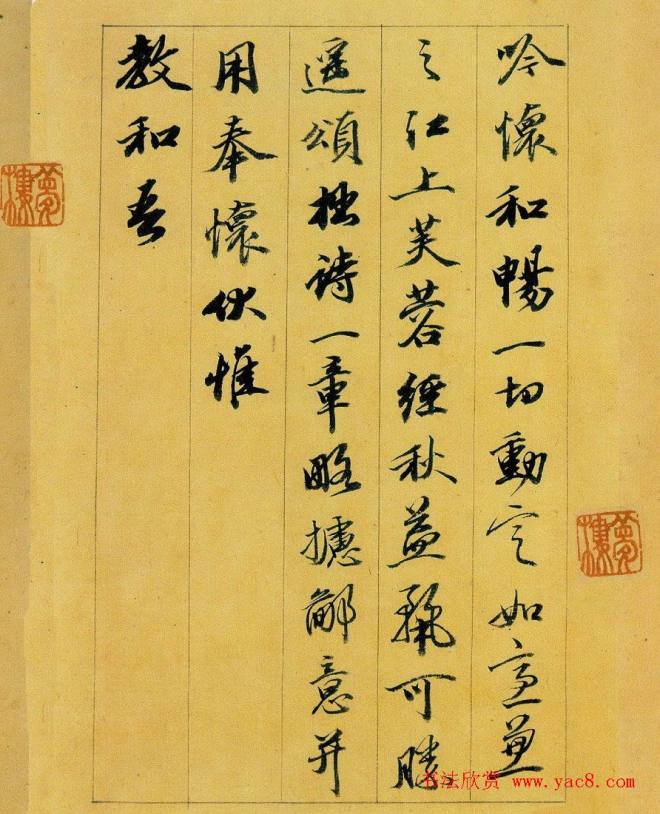 吟懷和暢一切動定如宜兼
之江上芙蓉經秋益可勝
遥頌拙詩一章略攄鄙意并
用奉懷伏惟
教和吾
夢樓
夢樓
书法欣赏 www.yac8.com